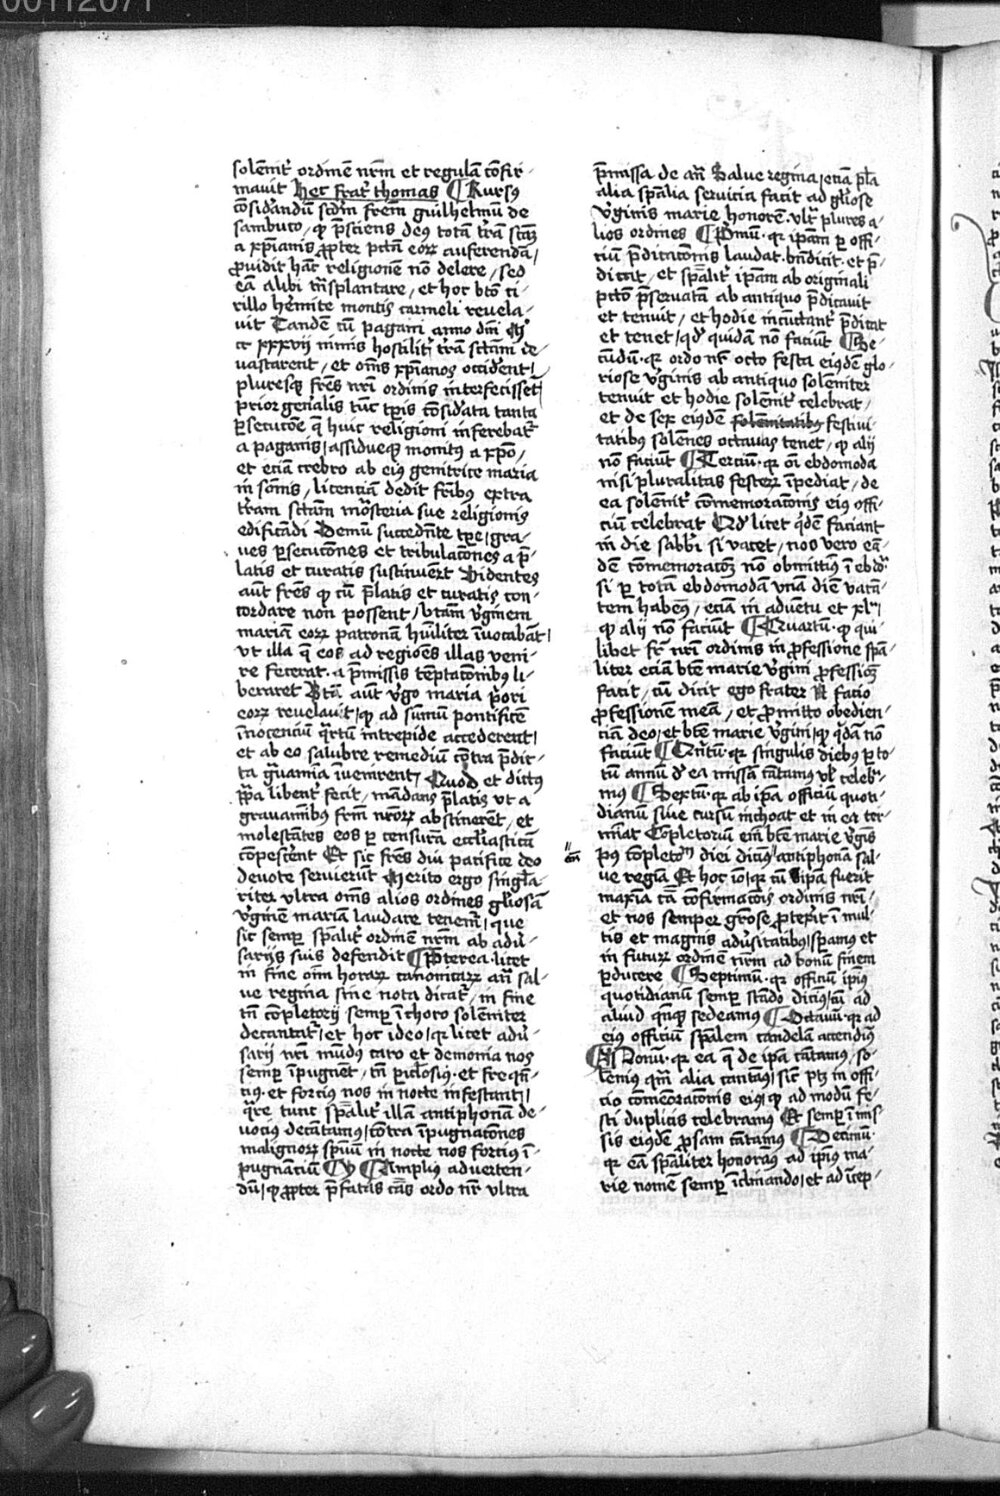 00112071
solēnit᷑ ordinē nr̄m et regulā cōfir-
mavit Hec frat᷑ thomas ¶ Rursꝰ
cōsid̕andū scd̄m frēm guilhelmū de
sambuco, ꝙ p̄sciens deꝰ totā tr̄a scām
a xp̄ianis ꝓpter pctā eoꝝ auferendā,
ꝓuidit hāc religionē nō delere, sed
eā alibi tn̄splantare, et hoc bt̄o ci-
rillo h̓emite montis carmeli reuela-
uit Tandē cū pagani anno dn̄i Mͦ
cc xxxvij nimis hostilit᷑ tr̄ā sctām de
uastarent, et om̄s xp̄ianos occid̓ent
pluresqꝫ fr̄es nr̄i ordinis interfecisset
prior gen̄alis tūc tp̄is cōsid̓ata tanta
ꝑsecucōe q̄ huic religioni inferebat᷑
a paganis, assidueqꝫ monitꝰ a xp̄o,
et eciā crebro ab eiꝰ genitrice maria
in sōnis, licenciā dedit fr̄ibꝰ extra
tr̄am sctām mōsteria sue religionis
edificādi Demū succedn̄te tp̄e, gra-
ues ꝑsecucōnes et tribulacōnes a p̄-
latis et curatis sustinuer̄t Videntes
aūt fr̄es ꝙ cū p̄latis et curatis con-
cordare non possent, btām v̓ginem
mariā eoꝝ patronā hūilit̓er īuocabāt
vt illa q̄ eos ad regiōes illas veni-
re fecerat, a p̄missis tēptacōnibꝰ li-
beraret Btā aūt v̓go maria p̓ori
eoꝝ reuelauit, ꝙ ad sūmū pontificē
īnocenciū q̓rtū intrepide accederent
et ab eo salubre remediū cōtra p̄dic-
ta g̓uamīa īuenirent, Quod et dictꝰ
pp̄a libent̓ fecit, mādans p̄latis vt a
grauamībꝰ fr̄m nr̄oꝝ abstinerēt, et
molestātes eos ꝑ censurā eccl̄iasticā
cōpesc̓ent Et sic fr̄es diu pacifice deo
deuote seruierūt Merito ergo singl̄a-
riter vltra om̄s alios ordines gl̓iosā
v̓ginē mariā laudare tenem᷑, que
sic semꝑ sp̄alit᷑ ordinē nr̄m ab adu̓-
sarijs suis defendit ¶ Preterea, licet
in fine om̄ horaꝝ canonicaꝝ an̄ sal-
ue regina sine nota dicat᷑, in fine
tn̄ cōpletorij semꝑ ī choro solēniter
decantat᷑, et hoc ideo, qꝛ licet adu̓-
sarij nr̄i mūdꝰ caro et demonia nos
semꝑ īpugnēt, tn̄ ꝑiculosiꝰ et freqn̄-
ciꝰ, et forciꝰ nos in nocte infestant,
q̓re tunc sp̄alit᷑ illā antiphonā de-
uociꝰ decātamꝰ, cōtra īpugnacōnes
malignoꝝ spūū in nocte nos forciꝰ ī-
pugnāciū ¶ Amplius aduerten-
dū, ꝙ ꝓpter p̄fatas cās ordo nr̄ vltra
p̄missa de an̄ Salue regina, eciā pl̄a
alia sp̄alia seruicia facit ad gl̓iose
v̓ginis marie honorē, vlt᷑ plures a-
lios ordines ¶ Prīmū, qꝛ ip̄am ꝑ offi-
ciū p̄dicatonis laudat, bn̄dicit, et p̄-
dicat, et sp̄alit᷑ ip̄am ab originali
pctō p̄seruatā ab antiquo p̄dicauit
et tenuit, et hodie incūctant᷑ p̄dicat
et tenet, qd̕ quidā nō faciūt ¶ Se-
cūdū, qꝛ ordo nr̄ octo festa eiusdē glo-
riose v̓ginis ab antiquo solēniter
tenuit et hodie solēnit᷑ celebrat,
et de sex eiꝰdē solēnitatibꝰ festiui-
tatibꝰ solēnes octauas tenet, ꝙ alij
nō faciūt ¶ Terciū, qꝛ oī ebdomoda
nisi pluralitas festoꝝ īpediat, de
ea solēnit᷑ cōmemoracōnis eiꝰ offi-
ciū celebrat Qd̕ licet q̓dē faciant
in die sabbī si vacet, nos vero eā-
dē cōmemoracōꝫ nō obmittimꝰ ī ebdō
si ꝑ totā ebdomodā vnā diē vacā-
tem habemꝰ, eciā in aduētu et xlͣ,
ꝙ alij nō faciūt ¶ Quartū, ꝙ qui-
libet fr̄ nr̄i ordinis in ꝓfessione spā-
liter eciā bt̄e marie v̓gini ꝓfessioꝫ
facit, cū dicit ego frater N facio
ꝓfessionē meā, et ꝓmitto obedien-
ciā deo, et bt̄e marie v̓gini, ꝙ q̓dā nō
faciūt ¶ Quintū, qꝛ singulis diebꝰ ꝑ to-
tū annū d̕ ea missā cātamus vl̕ celebᷓ-
mꝰ ¶ Sextū, qꝛ ab ip̄a officiū quoti-
dianū siue cursū inchoat et in ea ter-
minat Cōpletoriū em̄ bt̄e marie v̓gīs
pꝰ cōpletoᵐ diei dicimꝰ, antiphonā sal-
ue regīa Et hoc īo, qꝛ cū ip̄a fuerit
maxīa cā cōfirmacōis ordinis nr̄i,
et nos semper grōse ꝓtexit ī mul-
tis et magnis adu̓sitatibꝰ, spamꝰ et
in futuꝝ ordinē nr̄m ad bonū finem
ꝑducere ¶ Septimū, qꝛ officiū ipiꝰ
quotidianū semꝑ stādo dicimꝰ, cū ad
aliud qn̄qꝫ sedeamꝰ ¶ Octauū, qꝛ ad
eiꝰ officiū sp̄alem candelā accendimꝰ
¶ Nonū, qꝛ ea q̄ de ip̄a cātamꝰ, so-
lēniꝰ qm̄ alia cantamꝰ, sic ptꝫ in offi-
cio cōmēoracōnis eiꝰ, ꝙ ad modū fe-
sti duplicis celebramꝰ Et semꝑ ī mis-
sis eiꝰdē ꝓsam cātamꝰ ¶ Decimū,
qꝛ eā sp̄aliter honoramꝰ, ad ip̄iꝰ ma-
rie nomē semꝑ īclinando, et ad īcep-